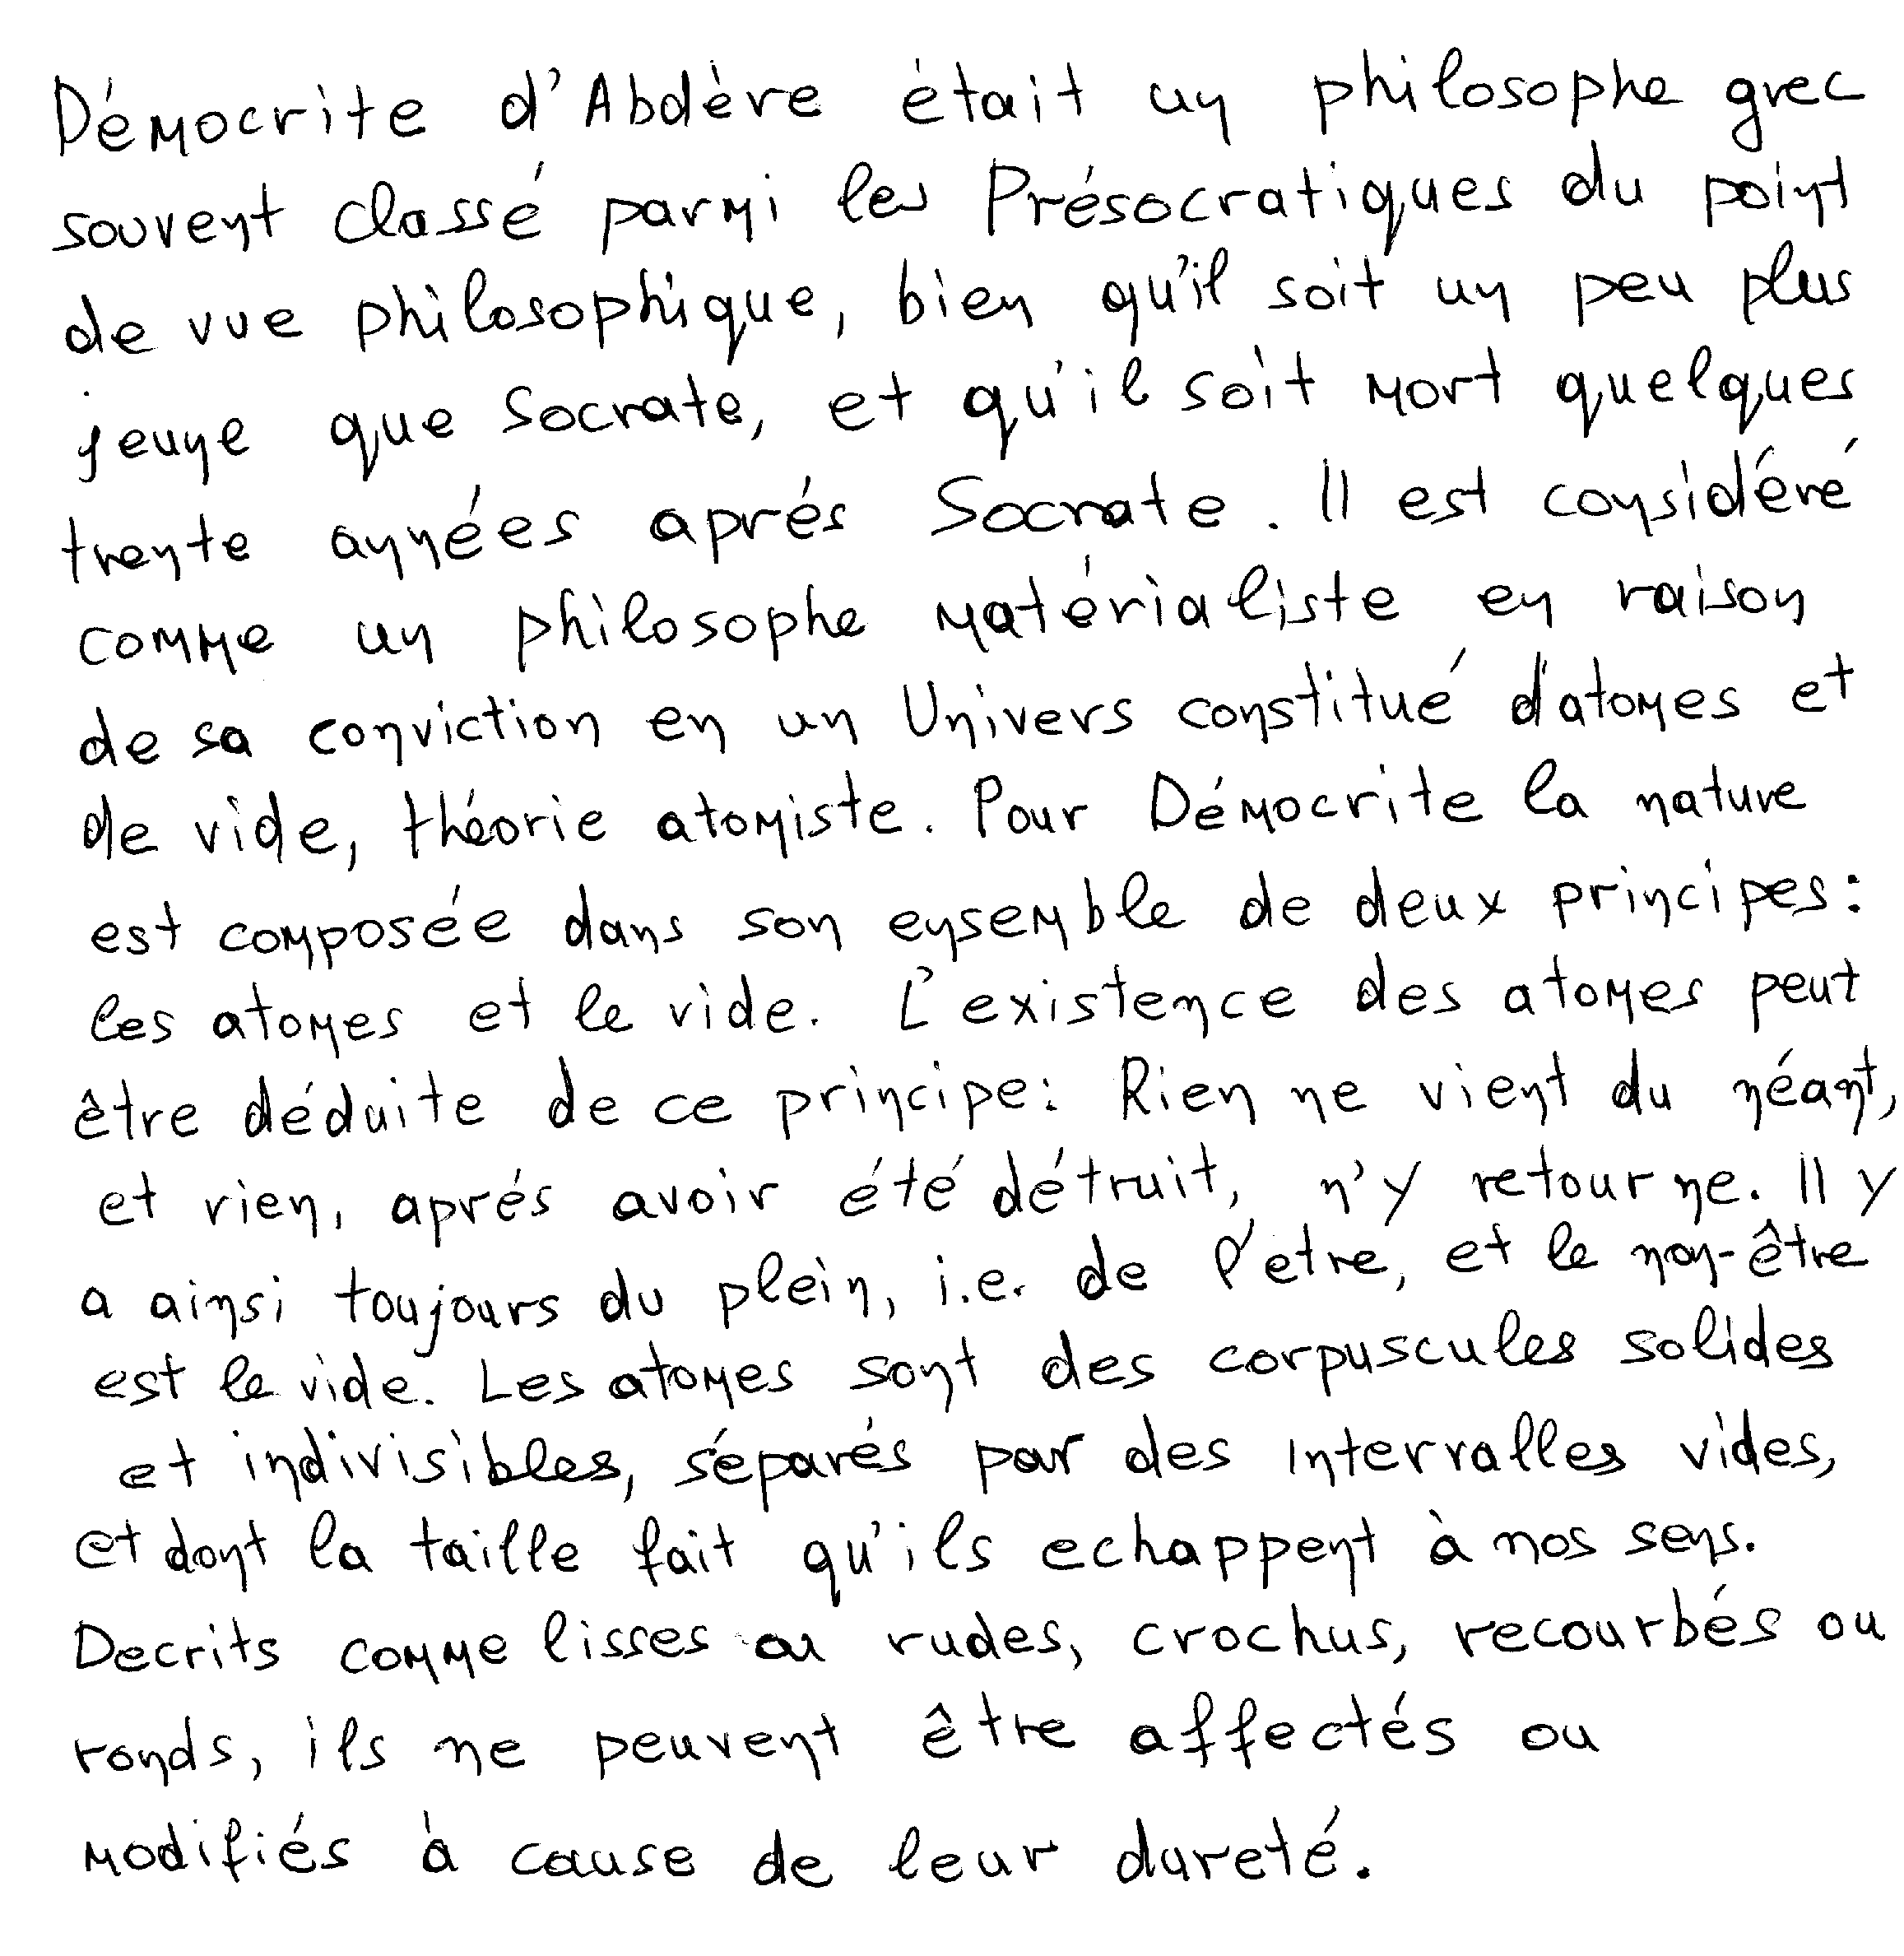 Démocrite d'Abdère était un philosophe grec
souvent classé parmi les Présocratiques du point
de vue philosophique, bien qu'il soit un peu plus
jeune que Socrate, et qu'il soit mort quelques
trente années aprés Socrate. Il est considéré
comme un philosophe matérialiste en raison
de sa conviction en un Univers constitué d'atomes et
de vide, théorie atomiste. Pour Démocrite la nature
est composée dans son ensemble de deux principes:
les atomes et le vide. L'existence des atomes peut
être déduite de ce principe: Rien ne vient du néant,
et rien, aprés avoir été détruit, n'y retourne. Il y
a ainsi toujours du plein, i.e. de l'etre, et le non-être
est le vide. Les atomes sont des corpuscules solides
et indivisibles, séparés par des intervalles vides,
et dont la taille fait qu'ils echappent à nos sens.
Decrits comme lisses ou rudes, crochus, recourbés ou
ronds, ils ne peuvent être affectés ou
modifiés à cause de leur dureté.